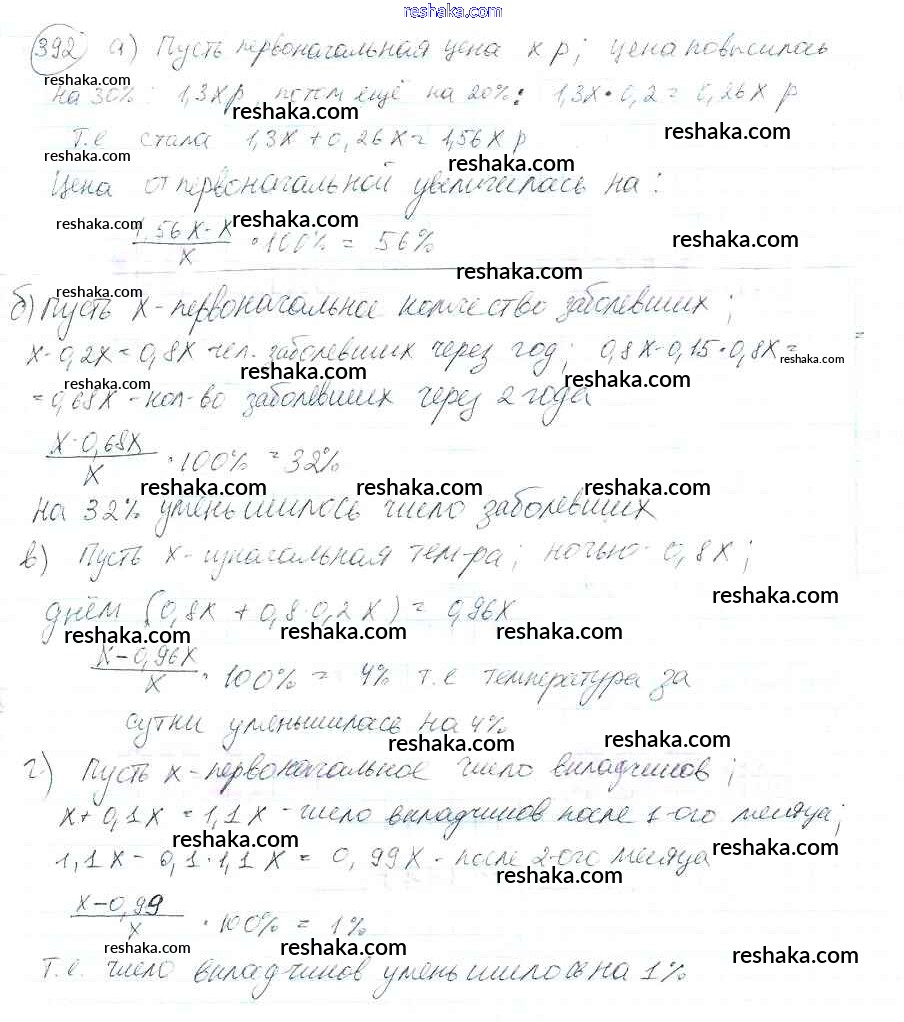 reshaka.com
392 а) Пусть первоначальная цена х р; цена повысилась
reshaka.com
на 30%: 1,3хр потом ещё на 20%: 1,3х·0,2=0,26х р
reshaka.com reshaka.com
Т.е стала 1,3х+0,26х=1,56х р
reshaka.com reshaka.com
Цена от первоначальной увеличилась на:
reshaka.com reshaka.com reshaka.com
(1,56х-х)/х · 100% = 56%
reshaka.com
reshaka.com
б) Пусть х-первоначальное количество заболевших;
х-0,2х=0,8х чел. заболевших через год; 0,8х-0,15·0,8х=
reshaka.com
reshaka.com reshaka.com reshaka.com
=0,68х-кол-во заболевших через 2 года
(х-0,68х)/х · 100% = 32%
reshaka.com reshaka.com reshaka.com
на 32% уменьшилось число заболевших
в) Пусть х- изначальная тем-ра; ночью-0,8х;
reshaka.com
днём (0,8х+0,8·0,2х)=0,96х
reshaka.com reshaka.com reshaka.com
(х-0,96х)/х · 100% = 4% т.е температура за
сутки уменьшилась на 4%
reshaka.com reshaka.com
г) Пусть х-первоначальное число вкладчиков;
х+0,1х=1,1х-число вкладчиков после 1-ого месяца;
reshaka.com
1,1х-0,1·1,1х=0,99х-после 2-ого месяца
reshaka.com reshaka.com
(х-0,99)/х · 100% = 1%
reshaka.com reshaka.com reshaka.com
Т.е. число вкладчиков уменьшилось на 1%